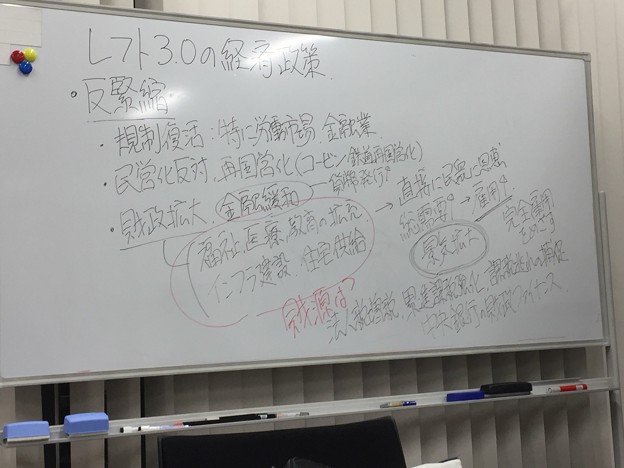 レフト3.0の経済政策
・反緊縮
・規制復活：特に労働市場、金融業
・民営化反対、再国営化(コービン・鉄道再国営化)
・財政拡大、金融緩和 ー 貨幣発行↑
福祉、医療、教育の拡充
インフラ建設、住宅供給
→ 直接に民衆に恩恵
総需要↑ → 雇用↑
景気拡大
完全雇用
財源は?
法人税増税、累進課税強化、課税逃れの捕捉
中央銀行の財政ファイナンス